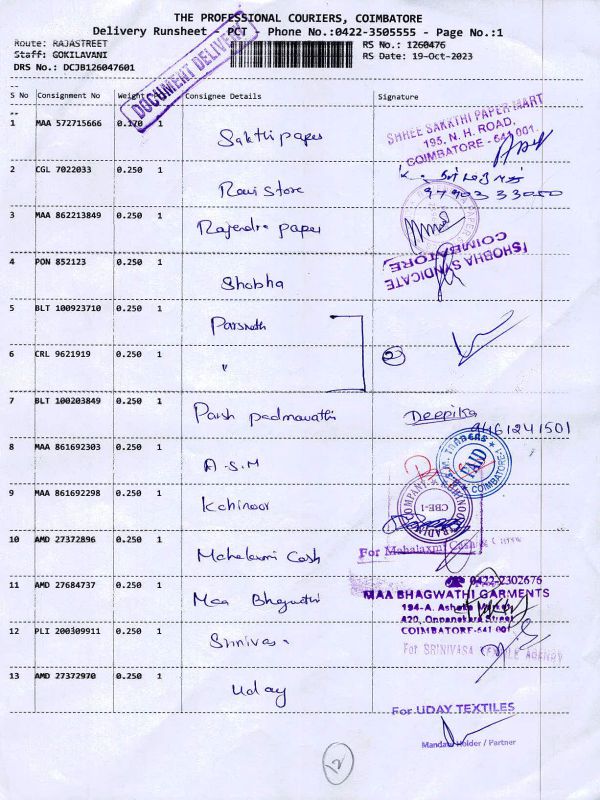 THE PROFESSIONAL COURIERS, COIMBATORE
Delivery Runsheet - PCT - Phone No.:0422-3505555 - Page No.:1
Route: RAJASTREET
RS No.: 1260476
Staff: GOKILAVANI
RS Date: 19-Oct-2023
DRS No.: DCJB126047601
DOCUMENT DELIVERY
S No Consignment No Weight Consignee Details Signature
1 MAA 572715666 0.170 1 Sakthi paper
SHREE SAKKTHI PAPER MART
195, N. H. ROAD,
COIMBATORE - 641 001.
2 CGL 7022033 0.250 1 Ravi Store
97903 33000
3 MAA 862213849 0.250 1 Rajendra paper
4 PON 852123 0.250 1 Shobha
SHOBHA SYNDICATE
COIMBATORE
5 BLT 100923710 0.250 1 Parsnath
6 CRL 9621919 0.250 1 "
2
7 BLT 100203849 0.250 1 Parsh padmavathi Deepika
9461241501
8 MAA 861692303 0.250 1 A.S.M
TRADERS
PAID
COIMBATORE-1
9 MAA 861692298 0.250 1 Kohinoor
CBE-1
10 AMD 27372896 0.250 1 Mahalaxmi Cash
For Mahalaxmi Cash &
11 AMD 27684737 0.250 1 Maa Bhagwathi
0422-2302676
MAA BHAGWATHI GARMENTS
194-A, Ashoka Market
420, Oppanakara Street
COIMBATORE-641 001
12 PLI 200309911 0.250 1 Srinivasa
For SRINIVASA TEXTILE AGENCY
13 AMD 27372970 0.250 1 Uday
For UDAY TEXTILES
Mandate Holder / Partner
12